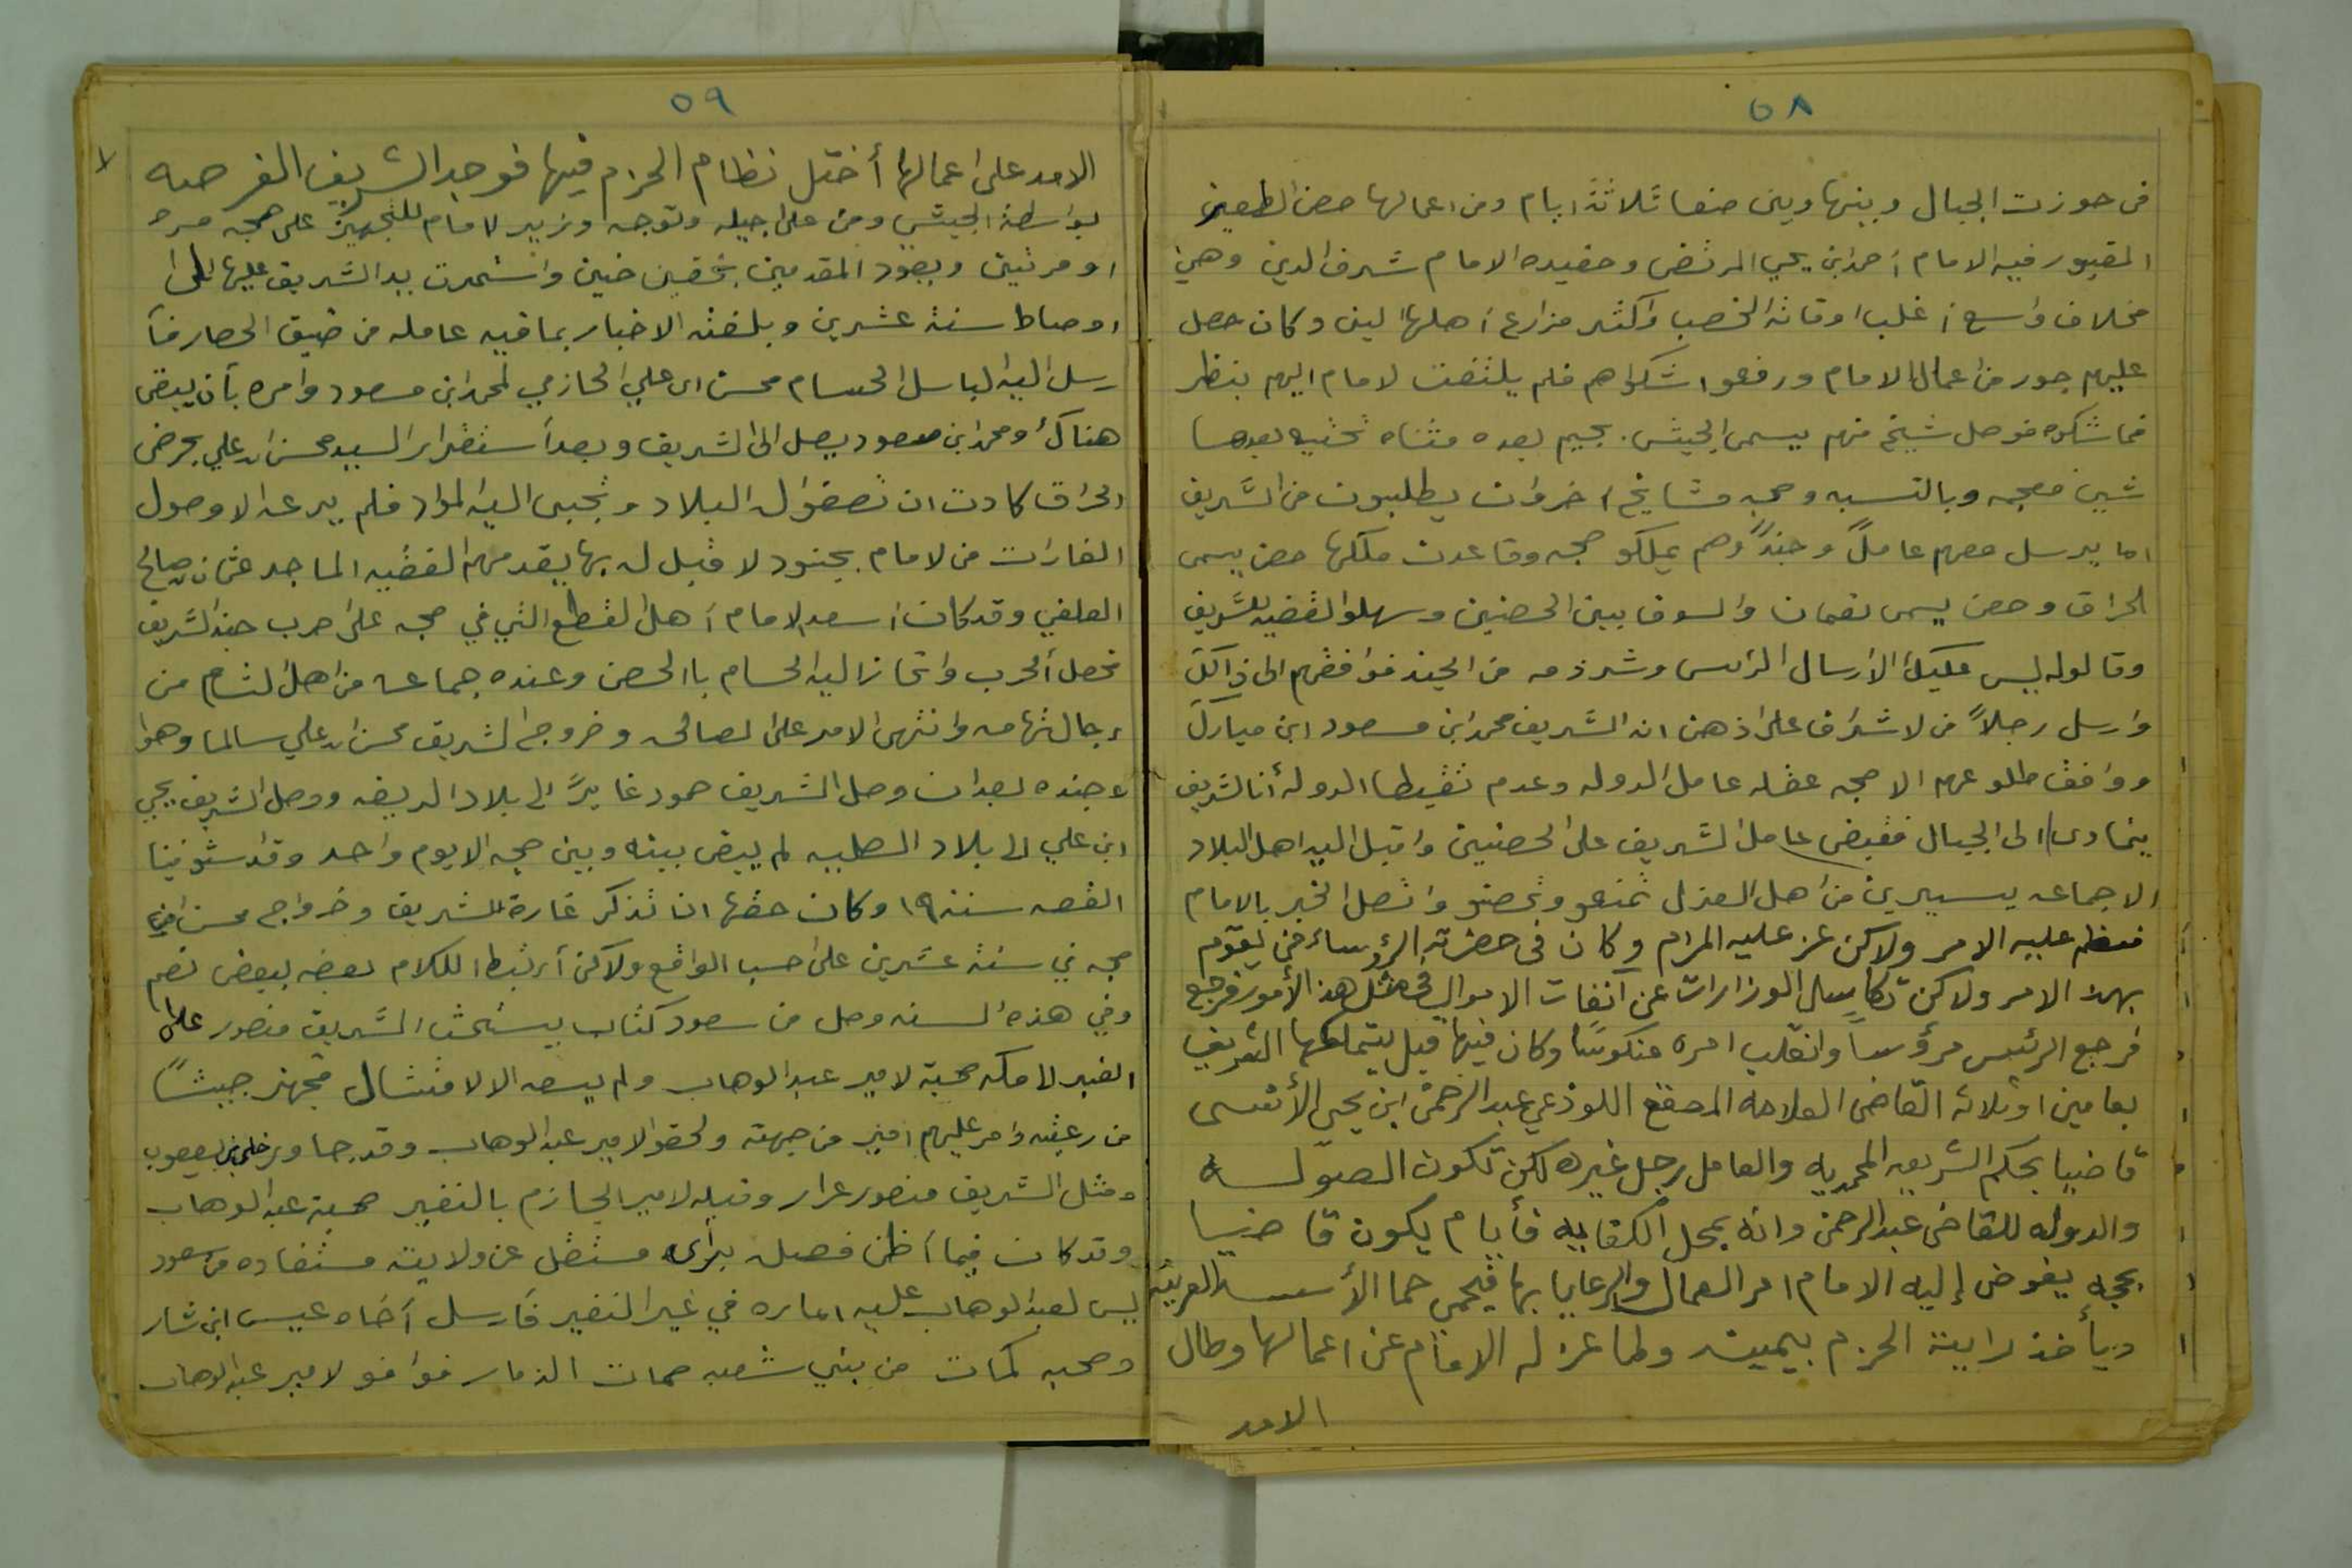 ٥٨
فى حوزت الجبال وبينها وبين صنعا ثلاثة ايام ومن اعمالها حصن الظفير
المقبور فيه الامام احمد ابن يحي المرتضى وحفيده الامام شرف الدين وهي
مخلاف واسع اغلب اوقاته الخصب واكثر مزارع اهلها البن وكان حصل
عليهم جور من اعمال الامام ورفعوا شكواهم فلم يلتفت لامام اليهم بنظر
فما شكوه فوصل شيخ منهم يسمى الجيش بجيم بعده مثناه تحتيه بعدها
شين معجمه وبالنسبه وصحبه مشايخ اخروان يطلبون من الشريف
اما يرسل معهم عاملاً وجنداً وهم يملكو حجه وقاعدت ملكها حصن يسمى
الجراف وحصن يسمى نعمان والسوق بين الحصنين وسهلوا القضيه للشريف
وقالوله ليس عليك الا ارسال الرئيس وشرذمه من الجند فوافقهم الى ذالك
وارسل رجلاً من لاشراف على اذهن انه الشريف محمد ابن مسعود ابن مبارك
ووافق طلوعهم الا حجه غفله عامل الدوله وعدم تيقيظها الدوله أن الشريف
يتمادى الى الجبال فقبض عامل الشريف على الحصنين واقبل اليه اهل البلاد
الا جماعه يسيرين من اهل العزل تمنعو وتحصنو واتصل الخبر بالامام
فعظم عليه الامر ولاكن عز عليه المرام وكان فى حضرته الرؤساء من يقوم
بهذا الامر ولاكن تكاسل الوزارات عن انفات الاموال فى مثل هذ الأمور فرجع
فرجع الرئيس مرؤساً وانقلب امره منكوسًا وكان فيها قبل يتملكها الشريف
بعامين اوثلاثه القاضى العلامه المصقع اللوذعي عبد الرحمن ابن يحيى الأنسى
قاضيا بحكم الشريعه المحمديه والعامل رجل غيره لكن تكون الصوله
والدوله للقاضى عبد الرحمن وانه بمحل الكفايه فأيام يكون قاضيا
بحجه يفوض إليه الامام امر العمال والرعايا بها فيحمي حما الأسد العرينه
ويأخذ راية الحزم بيمينه ولما عزله الامام عن اعمالها وطال
الامد
٥٩
الامد على اعمالها أختل نظام الحزم فيها فوجد الشريف الفرصه
بواسطة الجيش ومن على جيله وتوجه وزير لامام للتجهيز على حجه مره
او مرتين ويعود المقدمين بخفين حنين واستمرت يد الشريف عليها الى
اوصاط سنة عشرين وبلغته الاخبار بما فيه عامله من ضيق الحصار فأ
رسل اليه الباسل الحسام محسن ابن علي الحازمي لمحمد ابن مسعود وامره بأن يبقى
هناك ومحمد ابن مسعود يصل الى الشريف وبعد أستقرار السيد محسن ابن علي بحرض
الجراف كادت ان تصفوله البلاد وتجبى اليه المواد فلم يرعه الا وصول
الغارات من لامام بجنود لا قبل له بها يقدمهم الفقيه الماجد عثمان صالح
العلفي وقد كان اسعد الامام أهل القطع التي في حجه على حرب جند الشريف
فحصل ألحرب وانحاز اليه الحسام باالحصن وعنده جماعه من اهل الشام من
رجال تهامه وانتهى الامر على الصالحه وخروج الشريف محسن ابن علي سالما وهوا
وجنده بعد ان وصل الشريف حمود غايرً الى بلاد الريفه ووصل الشريف يحي
ابن علي الى بلاد الصلبه لم يبقى بينه وبين حجه الايوم واحد وقد استوفينا
القصه سنة ١٩ وكان حقها ان تذكر غارة الشريف وخرواج محسن من
حجه في سنة عشرين على حسب الواقع ولاكن أرتبط الكلام بعضه ببعض نعم
وفي هذه السنه وصل من سعود كتاب يستحث الشريف منصور على
النفير لا مكه صحبة لامير عبد الوهاب ولم يسعه الالامتثال فجهز جيشاً
من رعيته وامر عليهم امير من جهته ولحقو الامير عبد الوهاب وقد جاوز حلي بن يعقوب
ومثل الشريف منصور عرار وقبله لامير الحازم بالنفير صحبة عبد الوهاب
وقد كان فيما أظن فصله برأى مستقل عن ولايته مستفاده من سعود
ليس لعبد الوهاب عليه اماره في غير النفير فأرسل أخاه عيسى ابن شار
وصحبه كمات من بني شعبه حمات الذمار فوافو لامير عبد الوهاب